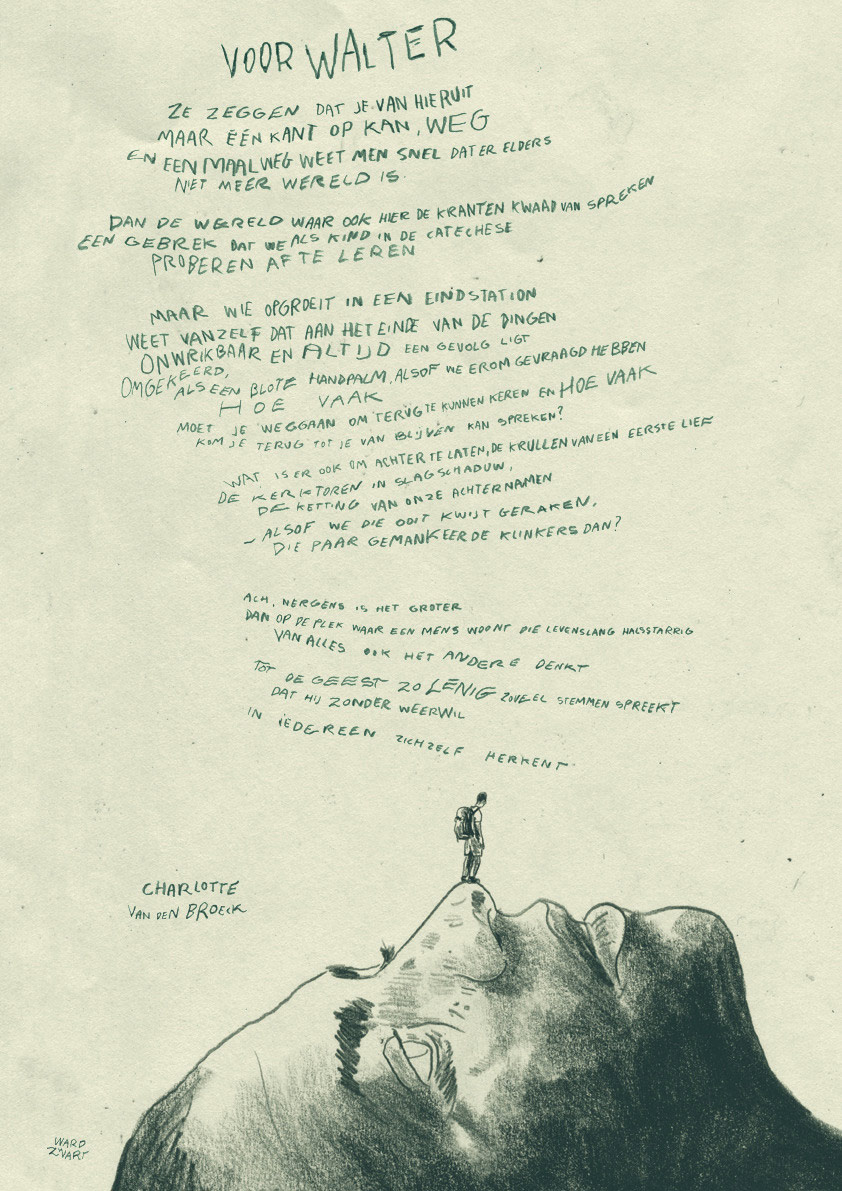 VOOR WALTER
ZE ZEGGEN DAT JE VAN HIERUIT
MAAR ÉÉN KANT OP KAN, WEG
EN EENMAAL WEG WEET MEN SNEL DAT ER ELDERS
NIET MEER WERELD IS.
DAN DE WERELD WAAR OOK HIER DE KRANTEN KWAAD VAN SPREKEN
EEN GEBREK DAT WE ALS KIND IN DE CATECHESE
PROBEREN AF TE LEREN
MAAR WIE OPGROEIT IN EEN EINDSTATION
WEET VANZELF DAT AAN HET EINDE VAN DE DINGEN
ONWRIKBAAR EN ALTIJD EEN GEVOLG LIGT
OMGEKEERD,
ALS EEN BLOTE HANDPALM, ALSOF WE EROM GEVRAAGD HEBBEN
HOE VAAK
MOET JE WEGGAAN OM TERUG TE KUNNEN KEREN EN HOE VAAK
KOM JE TERUG TOT JE VAN BLIJVEN KAN SPREKEN?
WAT IS ER OOK OM ACHTER TE LATEN, DE KRULLEN VAN EEN EERSTE LIEF
DE KERKTOREN IN SLAGSCHADUW,
DE KETTING VAN ONZE ACHTERNAMEN
– ALSOF WE DIE OOIT KWIJT GERAKEN,
DIE PAAR GEMANKEERDE KLINKERS DAN?
ACH, NERGENS IS HET GROTER
DAN OP DE PLEK WAAR EEN MENS WOONT DIE LEVENSLANG HALSSTARRIG
VAN ALLES OOK HET ANDERE DENKT
TOT
DE GEEST ZO LENIG ZOVEEL STEMMEN SPREEKT
DAT HIJ ZONDER WEERWIL
IN IEDEREEN ZICHZELF HERKENT
CHARLOTTE
VAN DEN BROECK
WARD
ZWART